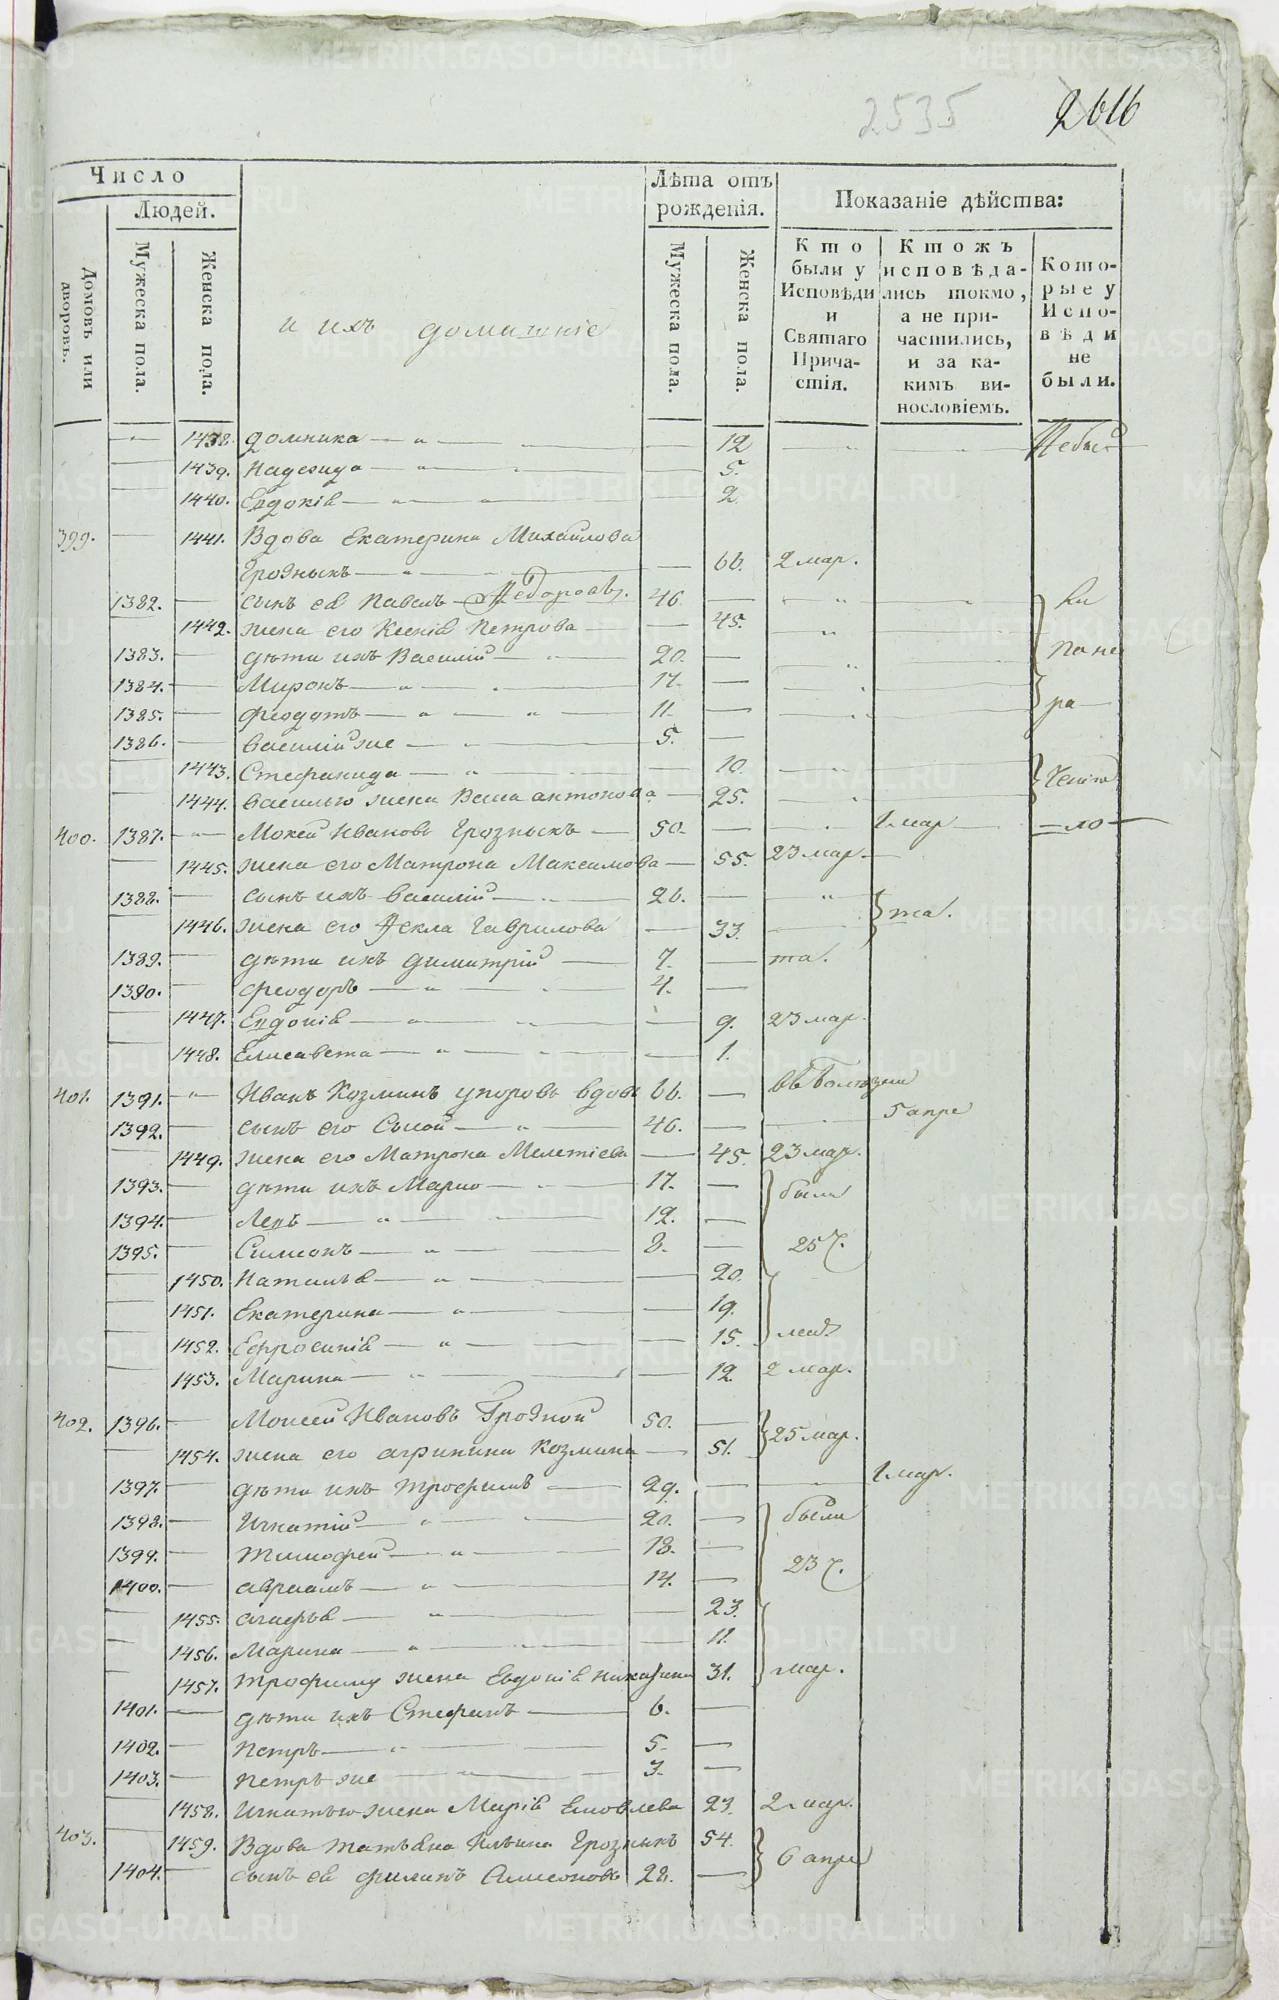 2535 2616
Число
Людей.
Домовъ или дворовъ.
Мужеска пола.
Женска пола.
и ихъ домашніе
Лѣта отъ рожденія.
Мужеска пола.
Женска пола.
Показаніе дѣйства:
Кто были у Исповѣди и Святаго Причастія.
Ктожъ исповѣдались токмо, а не причастились, и за какимъ винословіемъ.
Которые у Исповѣди не были.
1438. Домника 12
1439. Надежда 5.
1440. Евдокія 2
399. 1441. Вдова Екатерина Михайлова
Грозныхъ 66. 2 мар.
1382. сынъ ея Павелъ Ѳедоровъ. 46
1442. жена его Ксенія Петрова 45.
1383. дѣти ихъ Василій 20.
1384. Миронъ 17.
1385. Феодотъ 11.
1386. Василій же 5.
1443. Стефанида 10.
1444. Василью жена Васса Антонова 25.
400. 1387. Мокей Ивановъ Грозныхъ 50. 2 мар
1445. жена его Матрона Максимова 55. 23 мар.
1388. сынъ ихъ Василій 26. та.
1446. жена его Ѳекла Гаврилова 33.
1389. дѣти ихъ Димитрій 7. та.
1390. Феодоръ 4.
1447. Евдокія 9. 23 мар.
1448. Елисавета 1.
401. 1391. Иванъ Козминъ Упоровъ вдовъ 66.
1392. сынъ его Сысой 46. 5 апре
1449. жена его Матрона Мелетіева 45. 23 мар.
1393. дѣти ихъ Марко 17. были
1394. Левъ 12.
1395. Симеонъ 8. 25
1450. Наталья 20.
1451. Екатерина 19.
1452. Ефросинія 15.
1453. Марина 12. 2 мар.
402. 1396. Моисей Ивановъ Грозной 50.
1454. жена его Агрипина Козмина 51. 25 мар.
1397. дѣти ихъ Трофимъ 29. 2 мар.
1398. Игнатій 20. были
1399. Тимофей 18.
1400. Авраамъ 14. 23
1455. 23.
1456. Марина 11.
1457. Трофиму жена Евдокія 31. мар.
1401. дѣти ихъ Стефанъ 6.
1402. Петръ 5.
1403. Петръ же 3.
1458. Игнатью жена Марія Яковлева 23. 2 мар.
403. 1459. Вдова Татьяна Ильина Грозныхъ 54.
1404. сынъ ея Филипъ Симеоновъ 28. 6 апре
METRIKI.GASO-URAL.RU